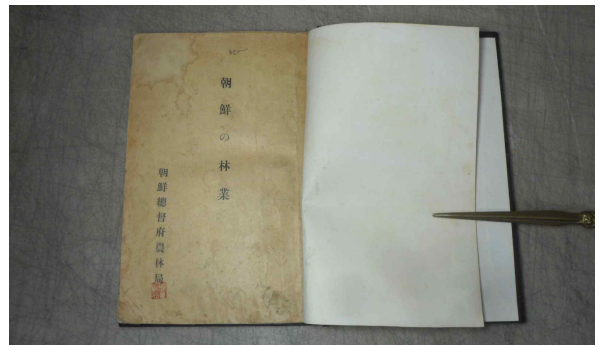 朝鮮の林業
朝鮮總督府農林局